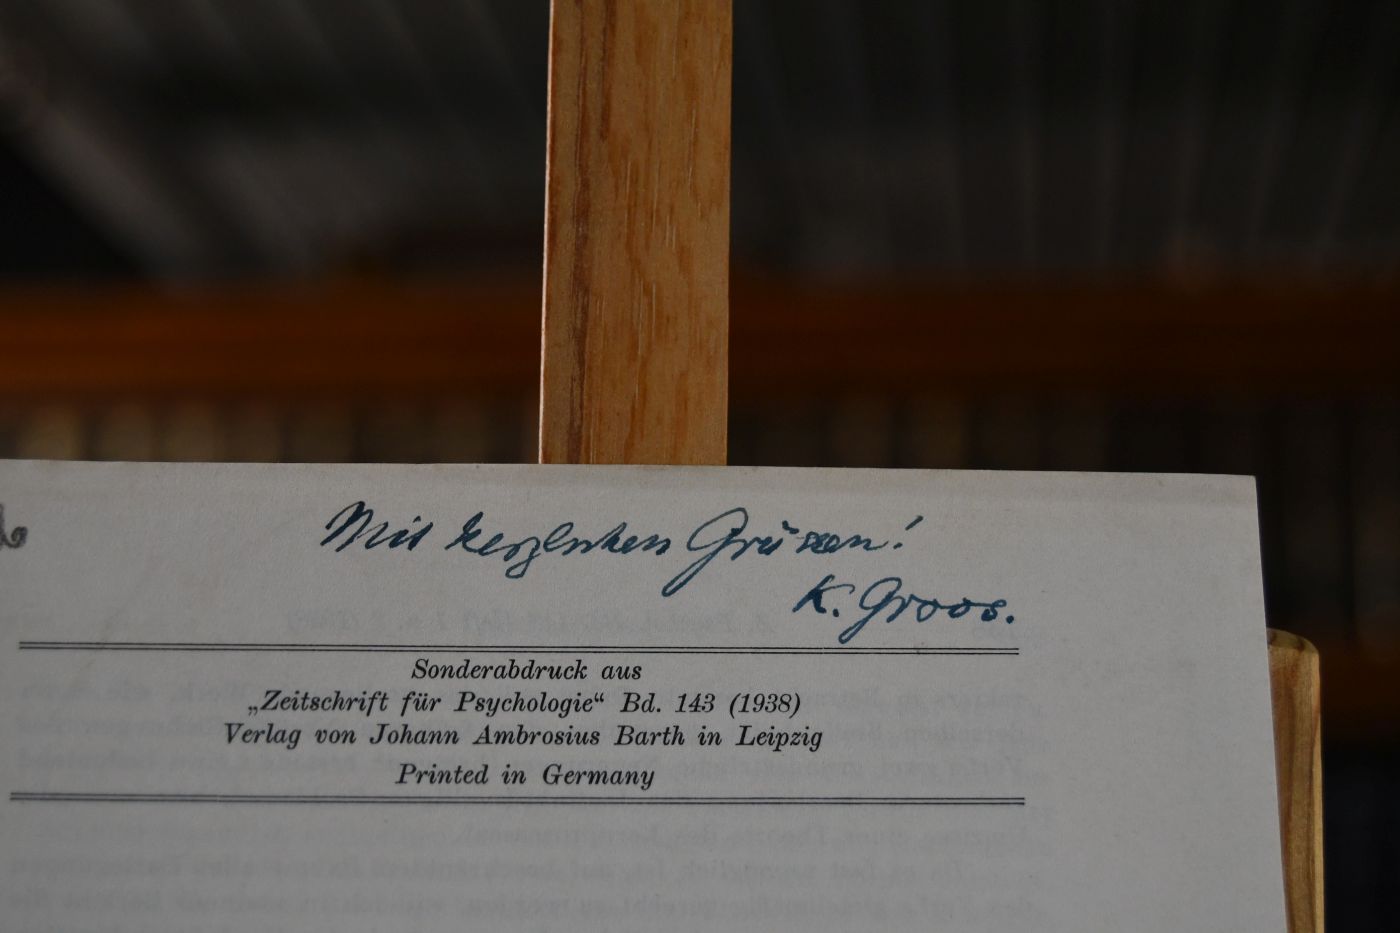 Mit herzlichen Grüssen!
K. Groos.
Sonderabdruck aus
„Zeitschrift für Psychologie“ Bd. 143 (1938)
Verlag von Johann Ambrosius Barth in Leipzig
Printed in Germany